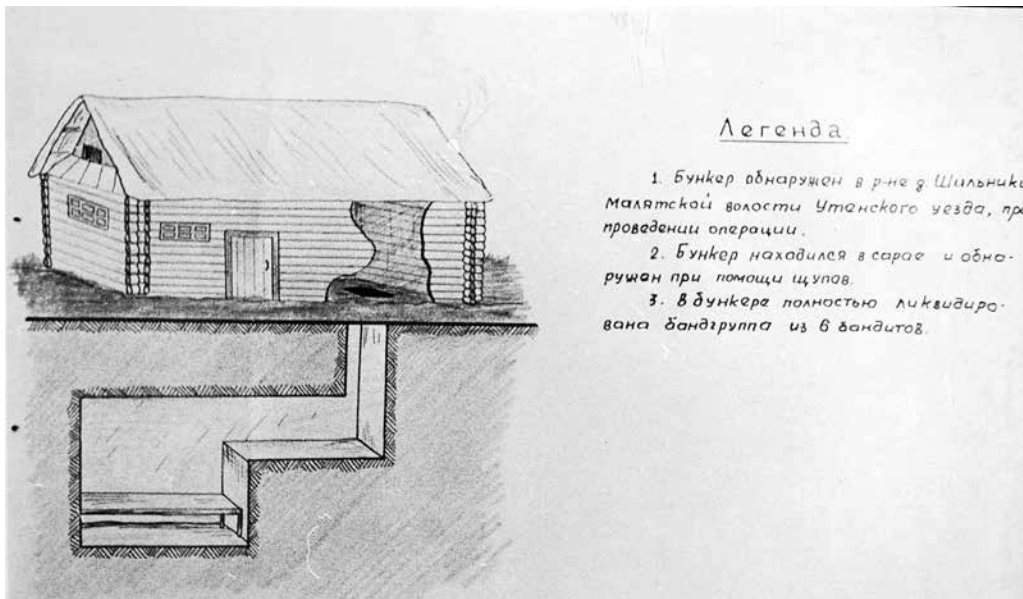 Легенда.
1. Бункер обнаружен в р-не д Шильники
Малятской волости Утенского уезда, пр
проведении операции.
2. Бункер находился в сарае и обна-
ружен при помощи щупов.
3. В бункере полностью ликвидиро-
вана бандгруппа из 6 бандитов.